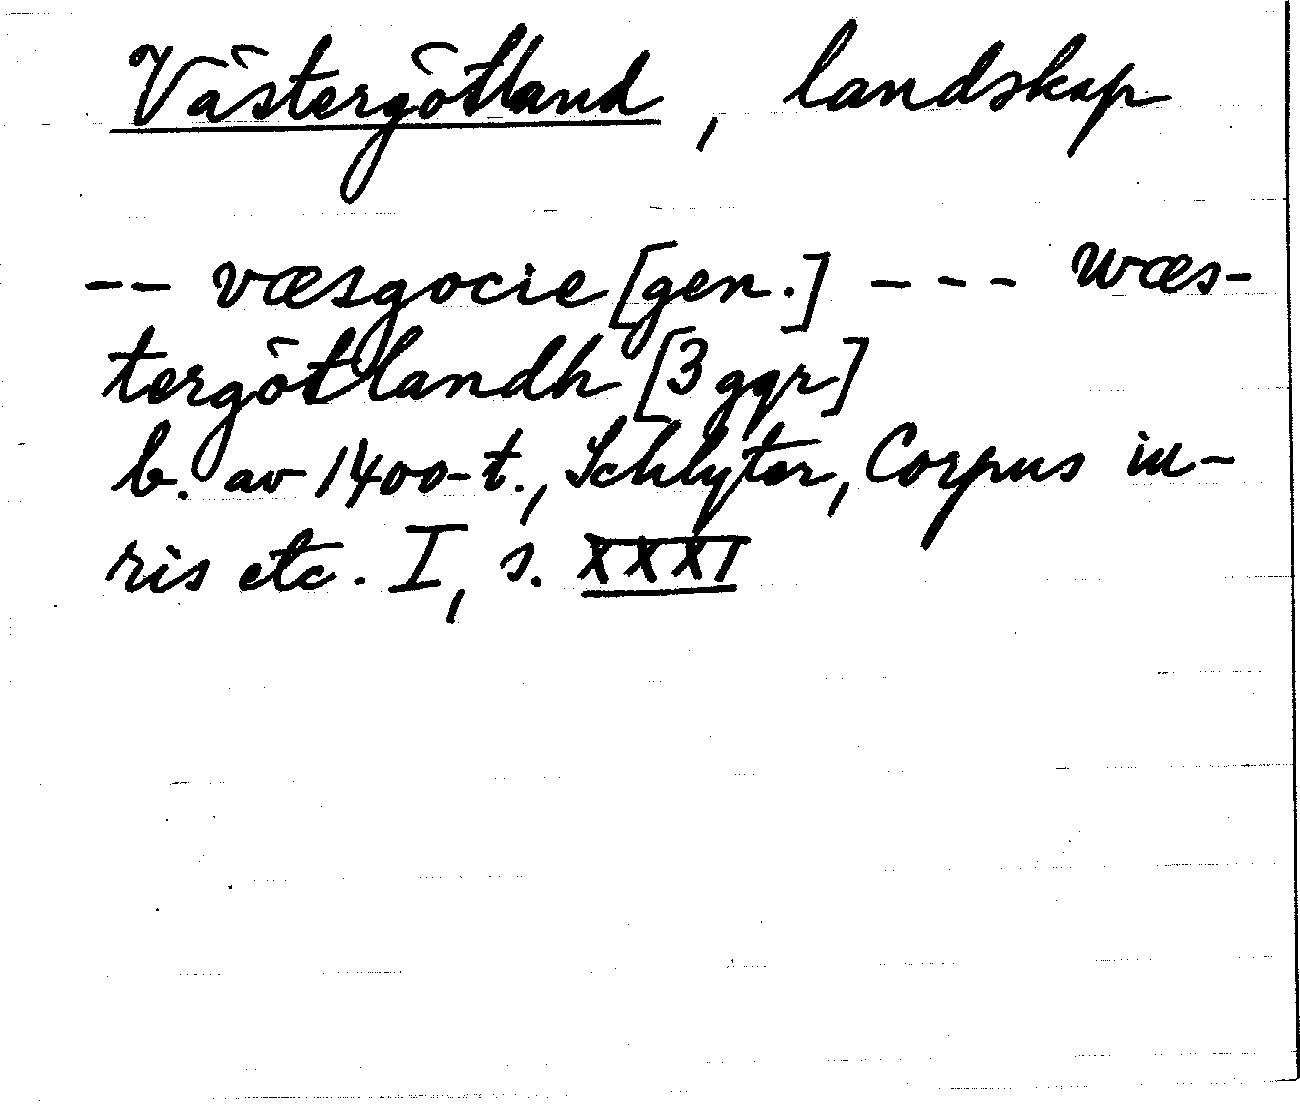 Västergötland, landskap
-- væsgocie [gen.] --- wæs-
tergötlandh [3 ggr]
b. av 1400-t., Schlyter, Corpus iu-
ris etc. I, s. XXXI